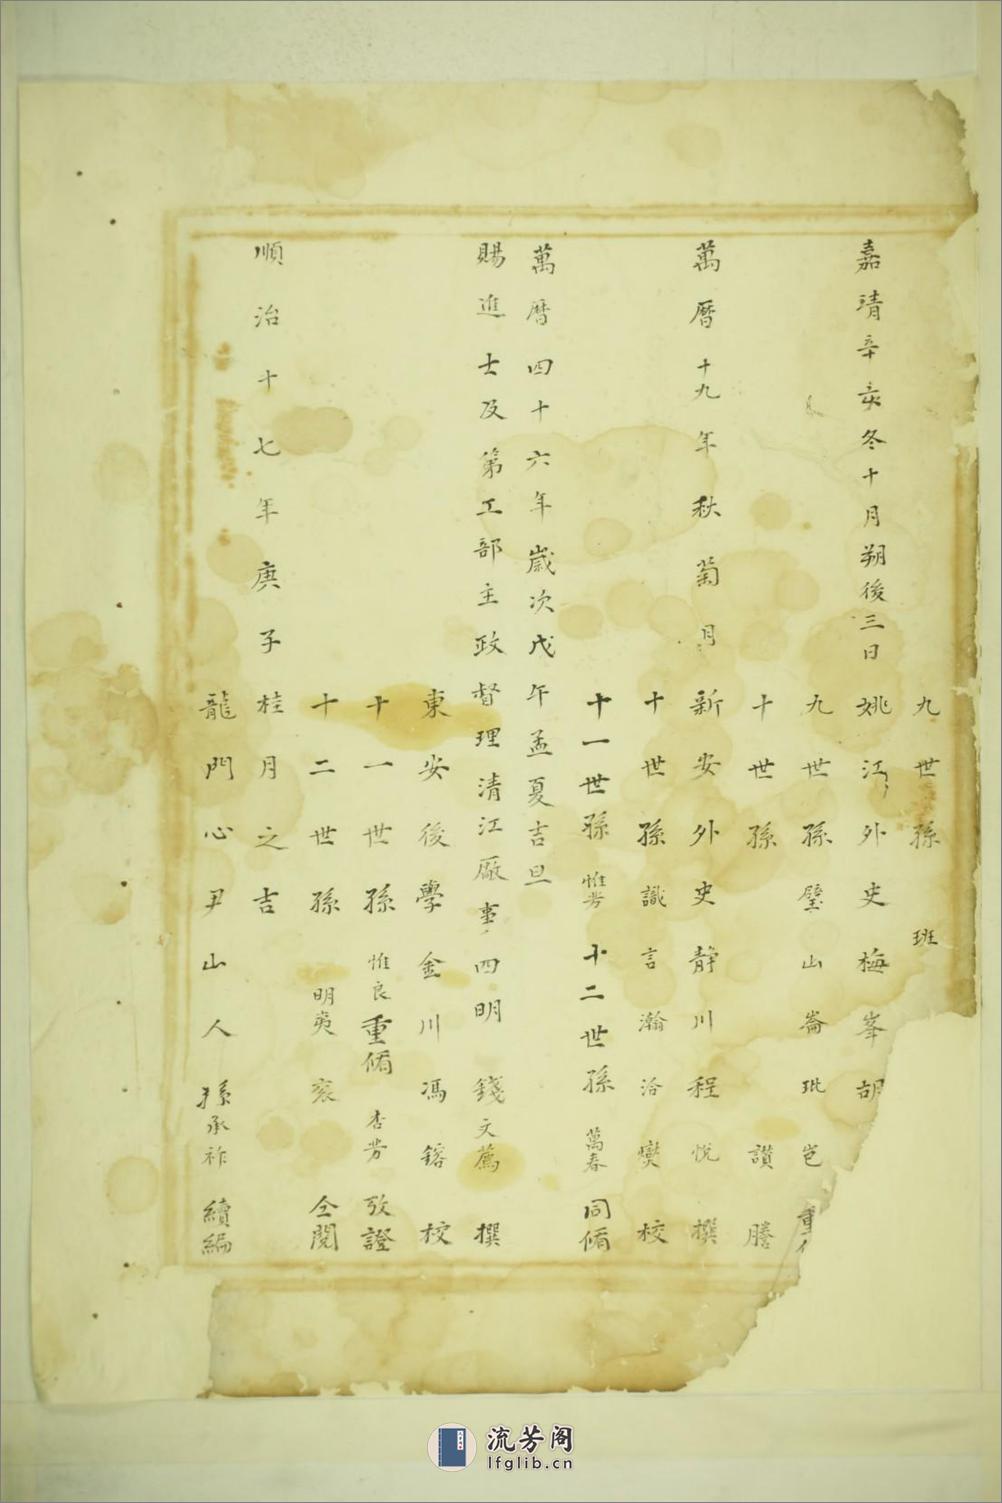 九世孫 班
嘉靖辛亥冬十月朔後三日 姚江外史梅峯胡
九世孫 璧山崙玭岜 重
十世孫 讃 謄
萬曆十九年秋菊月 新安外史静川程悅撰
十世孫 識言瀚洽孌 校
十一世孫 惟芳 十二世孫 萬春 同脩
萬曆四十六年歲次戊午孟夏吉旦
賜進士及第工部主政督理清江廠事四明 錢文薦 撰
東安後學金川馮鎔校
十一世孫 惟良 重脩 杏芳 攷證
十二世孫 明 衮 仝閱
順治十七年庚子桂月之吉
龍門心尹山人孫承祚 續編
流芳阁
lfglib.cn